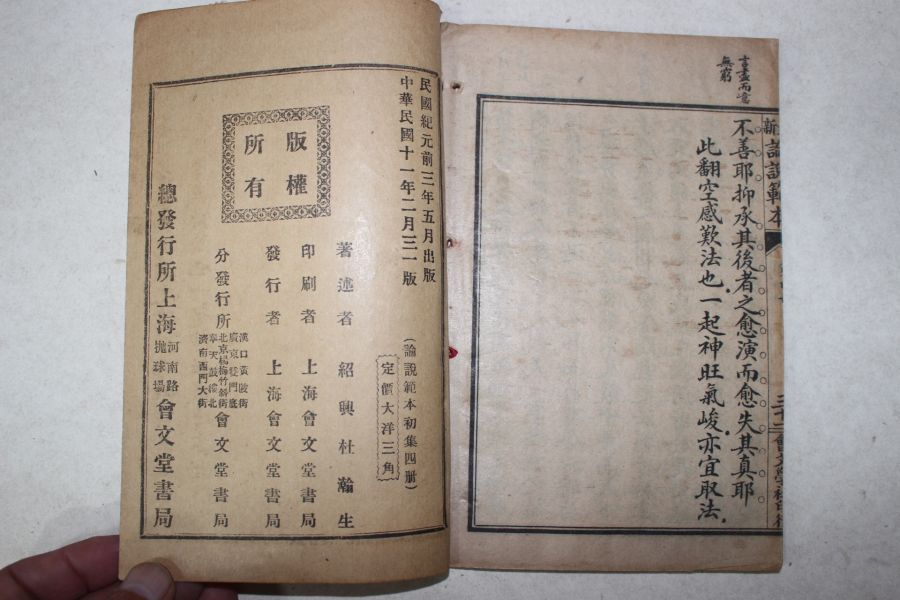 言盡而意
無窮
不善耶抑承其後者之愈演而愈失其真耶
此翻空感歎法也一起神旺氣峻亦宜取法
新論說範本
民國紀元前三年五月出版
中華民國十一年二月三一版
(論說範本初集四册)
定價大洋三角
版權
所有
著述者 紹興杜瀚生
印刷者 上海會文堂書局
發行者 上海會文堂書局
分發行所
漢口黃陂街
廣東雙門底
北京楊梅竹斜街
奉天鼓樓北
濟南西門大街
會文堂書局
總發行所上海
河南路
拋球場
會文堂書局